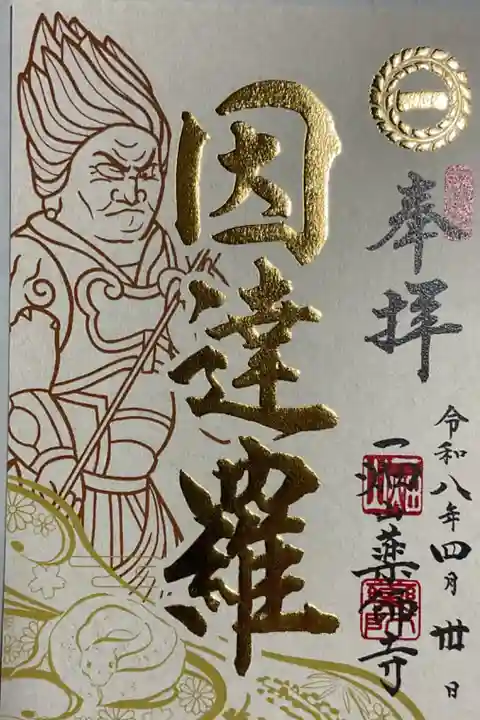 奉拝
令和八年四月卅日
一畑山薬師寺
因達羅